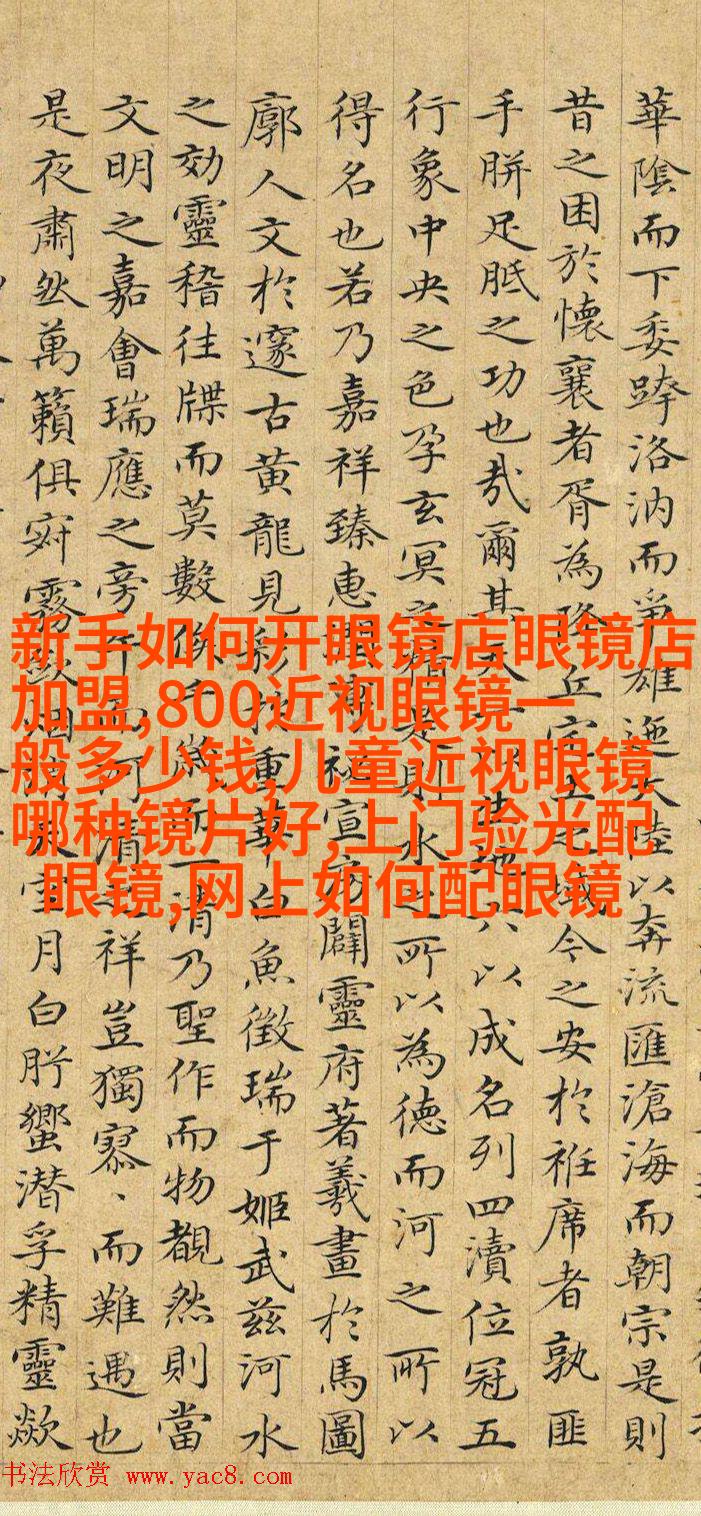 華陰而下委跨洛汭而爭雄迤大陸以奔流匯滄海而朝宗是則
昔之困於懷襄者胥為降丘宅土之域今之安於袵席者孰匪
手胼足胝之功也哉爾其天一以生地六以成名列四瀆位冠五
行象中央之色孕玄冥之精是則水之所以為德而河之所以
得名也若乃嘉祥臻惠闢靈府著羲畫於馬圖
廓人文於邃古黃龍見彩於重華白魚徵瑞于姬武茲河水
之効靈稽往牒而莫數俟千歲而一清乃聖作而物覩然則當
文明之嘉會瑞應之旁午而河清之祥豈獨寡、而難遇也
是夜肅然萬籟俱寂霧歛烟開泉空月白肹蠁潛孚精靈歘
新手如何开眼镜店眼镜店
加盟,800近视眼镜一
般多少钱,儿童近视眼镜
哪种镜片好,上门验光配
眼镜,网上如何配眼镜
书法欣赏 www.yac8.com